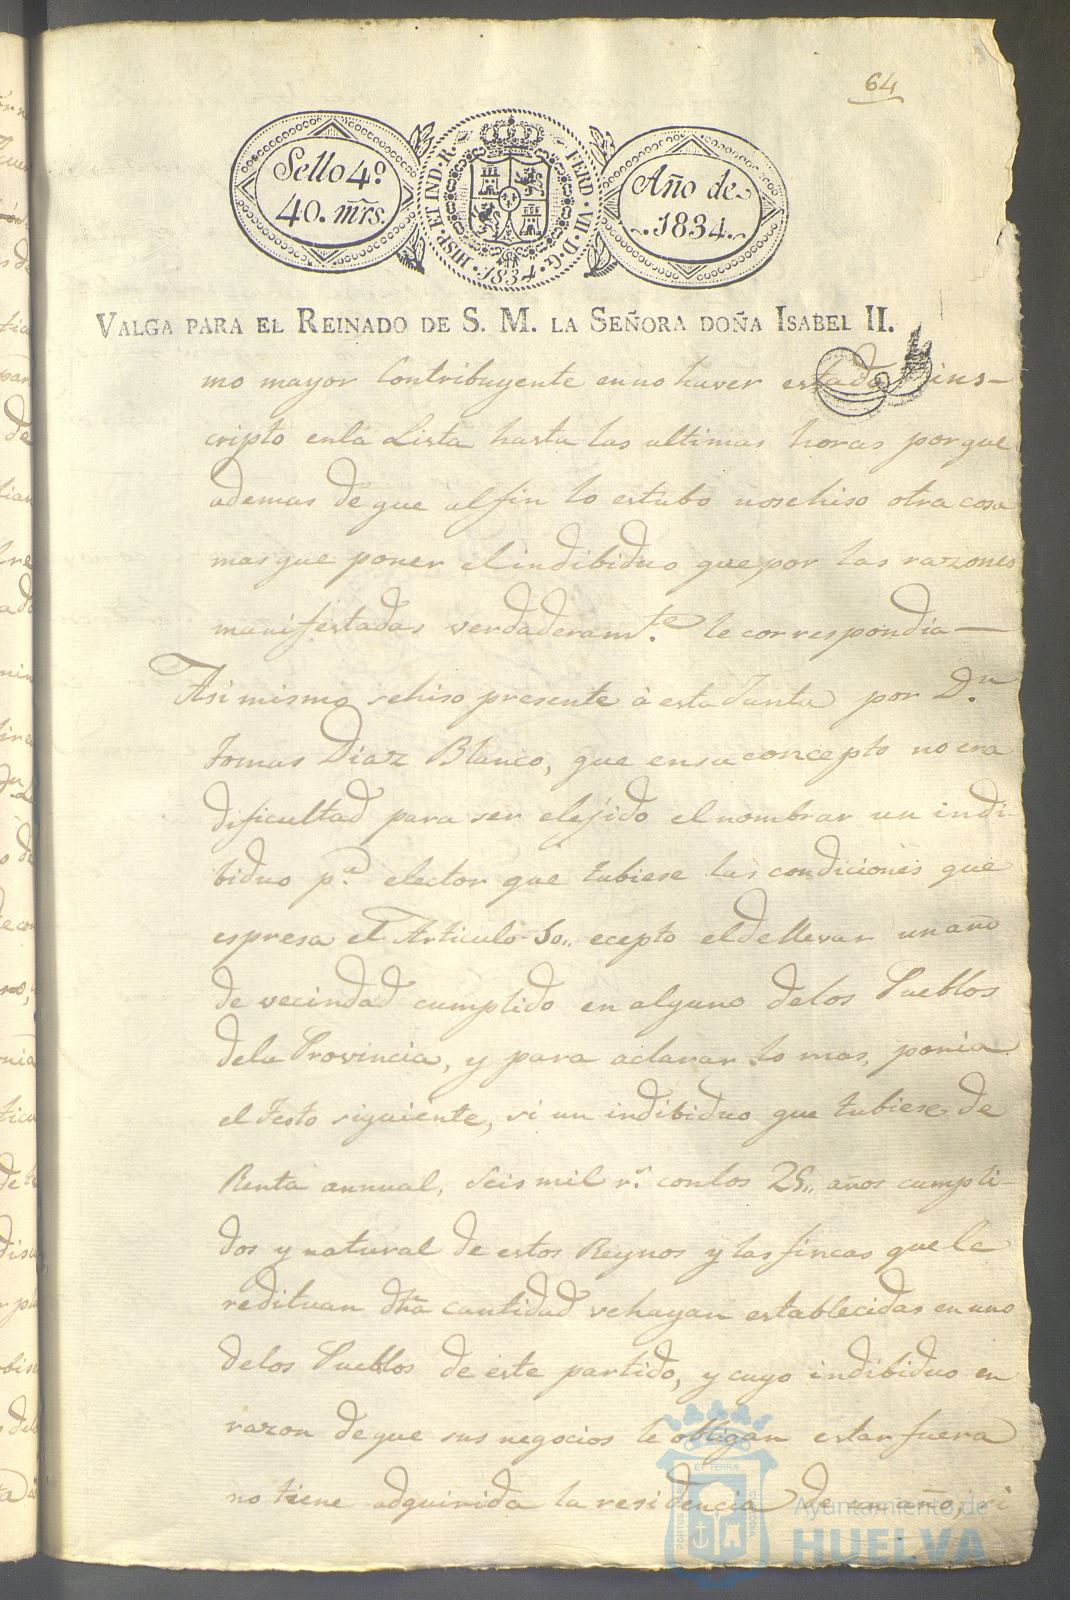 64
Sello 4º
40. mrs.
HISP. ET IND. R.
FERD. VII. D. G.
1834
Año de
1834.
VALGA PARA EL REINADO DE S. M. LA SEÑORA DOÑA ISABEL II.
mo mayor Contribuyente enno haver estado ins-
cripto enla Lista hasta las ultimas horas porque
ademas de que alfin lo estubo nosehiso otra cosa
masque poner elindibiduo quepor las razones
manifestadas verdaderamte. le correspondia—
Asi mismo sehiso presente à esta Junta por Dn.
Tomas Diaz Blanco, que ensu concepto no era
dificultad para ser elejido el nombrar un indi-
biduo pa. elector que tubiese las condiciones que
espresa el Articulo 50,, ecepto eldellevar un año
de vecindad cumplido en alguno delos Pueblos
dela Provincia, y para aclarar lo mas, ponia
el testo siguiente, si un indibiduo que tubiese de
Renta annual, seis mil rs. conlos 25,, años cumpli-
dos y natural de estos Reynos y las fincas que le
redituan dha cantidad sehayan establecidas en uno
delos Pueblos de este partido, y cuyo indibiduo en
razon deque sus negocios le obligan estar fuera
no tiene adquirida la residencia de un año, si
ET TERRÆ
Ayuntamiento de
HUELVA